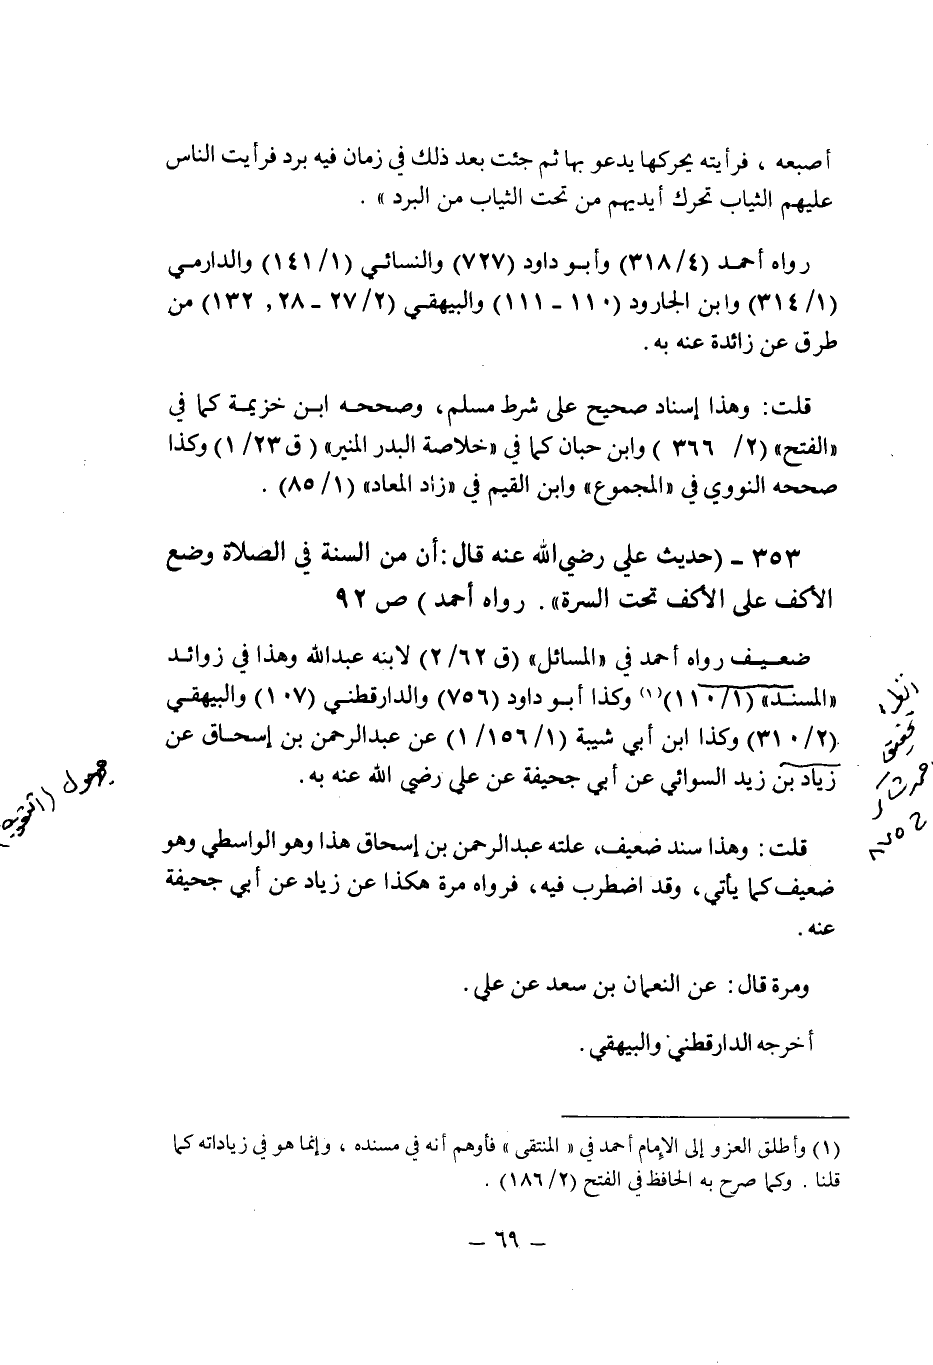 أصبعه ، فرأيته يحركها يدعو بها ثم جئت بعد ذلك في زمان فيه برد فرأيت الناس
عليهم الثياب تحرك أيديهم من تحت الثياب من البرد » .
رواه أحمد (٣١٨/٤) وأبو داود (٧٢٧) والنسائي (١٤١/١) والدارمي
(٣١٤/١) وابن الجارود (١١٠ ـ ١١١) والبيهقي (٢٧/٢ ـ ٢٨ , ١٣٢) من
طرق عن زائدة عنه به .
قلت : وهذا إسناد صحيح على شرط مسلم ، وصححه ابن خزيمة كما في
«الفتح» (٢/ ٣٦٦ ) وابن حبان كما في «خلاصة البدر المنير» ( ق ٢٣/ ١) وكذا
صححه النووي في «المجموع» وابن القيم في «زاد المعاد» (٨٥/١) .
٣٥٣ ـ (حديث علي رضي الله عنه قال : أن من السنة في الصلاة وضع
الأكف على الأكف تحت السرة» . رواه أحمد ) ص ٩٢
ضعيف رواه أحمد في «المسائل» (ق ٢/٦٢) لابنه عبدالله وهذا في زوائد
«المسند» (١١٠/١)(١) وكذا أبو داود (٧٥٦) والدارقطني (١٠٧) والبيهقي
(٣١٠/٢) وكذا ابن أبي شيبة (١/١٥٦/١) عن عبدالرحمن بن إسحاق عن
زياد بن زيد السوائي عن أبي جحيفة عن علي رضي الله عنه به .
قلت : وهذا سند ضعيف، علته عبدالرحمن بن إسحاق هذا وهو الواسطي وهو
ضعيف كما يأتي ، وقد اضطرب فيه ، فرواه مرة هكذا عن زياد عن أبي جحيفة
عنه .
ومرة قال : عن النعمان بن سعد عن علي .
أخرجه الدارقطني والبيهقي .
(١) وأطلق العزو إلى الإمام أحمد في « المنتقى » فأوهم أنه في مسنده ، وإنما هو في زياداته كما
قلنا . وكما صرح به الحافظ في الفتح (١٨٦/٢) .
ـ ٦٩ ـ
مجهول (التقريب)
تحقيق